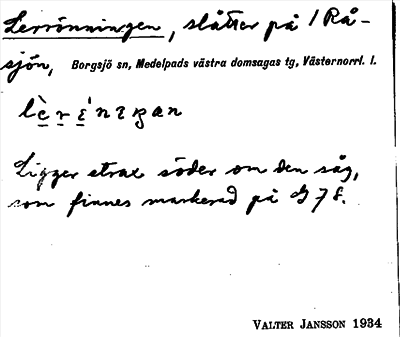 Lerrönningen, slåtter på / Rå-
sjön, Borgsjö sn, Medelpads västra domsagas tg, Västernorrl. l.
Ligger strax söder om den såg,
som finnes markerad på G 78.
VALTER JANSSON 1934